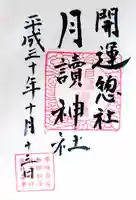 開運惣社
月讀神社
平成三十年十月十三日